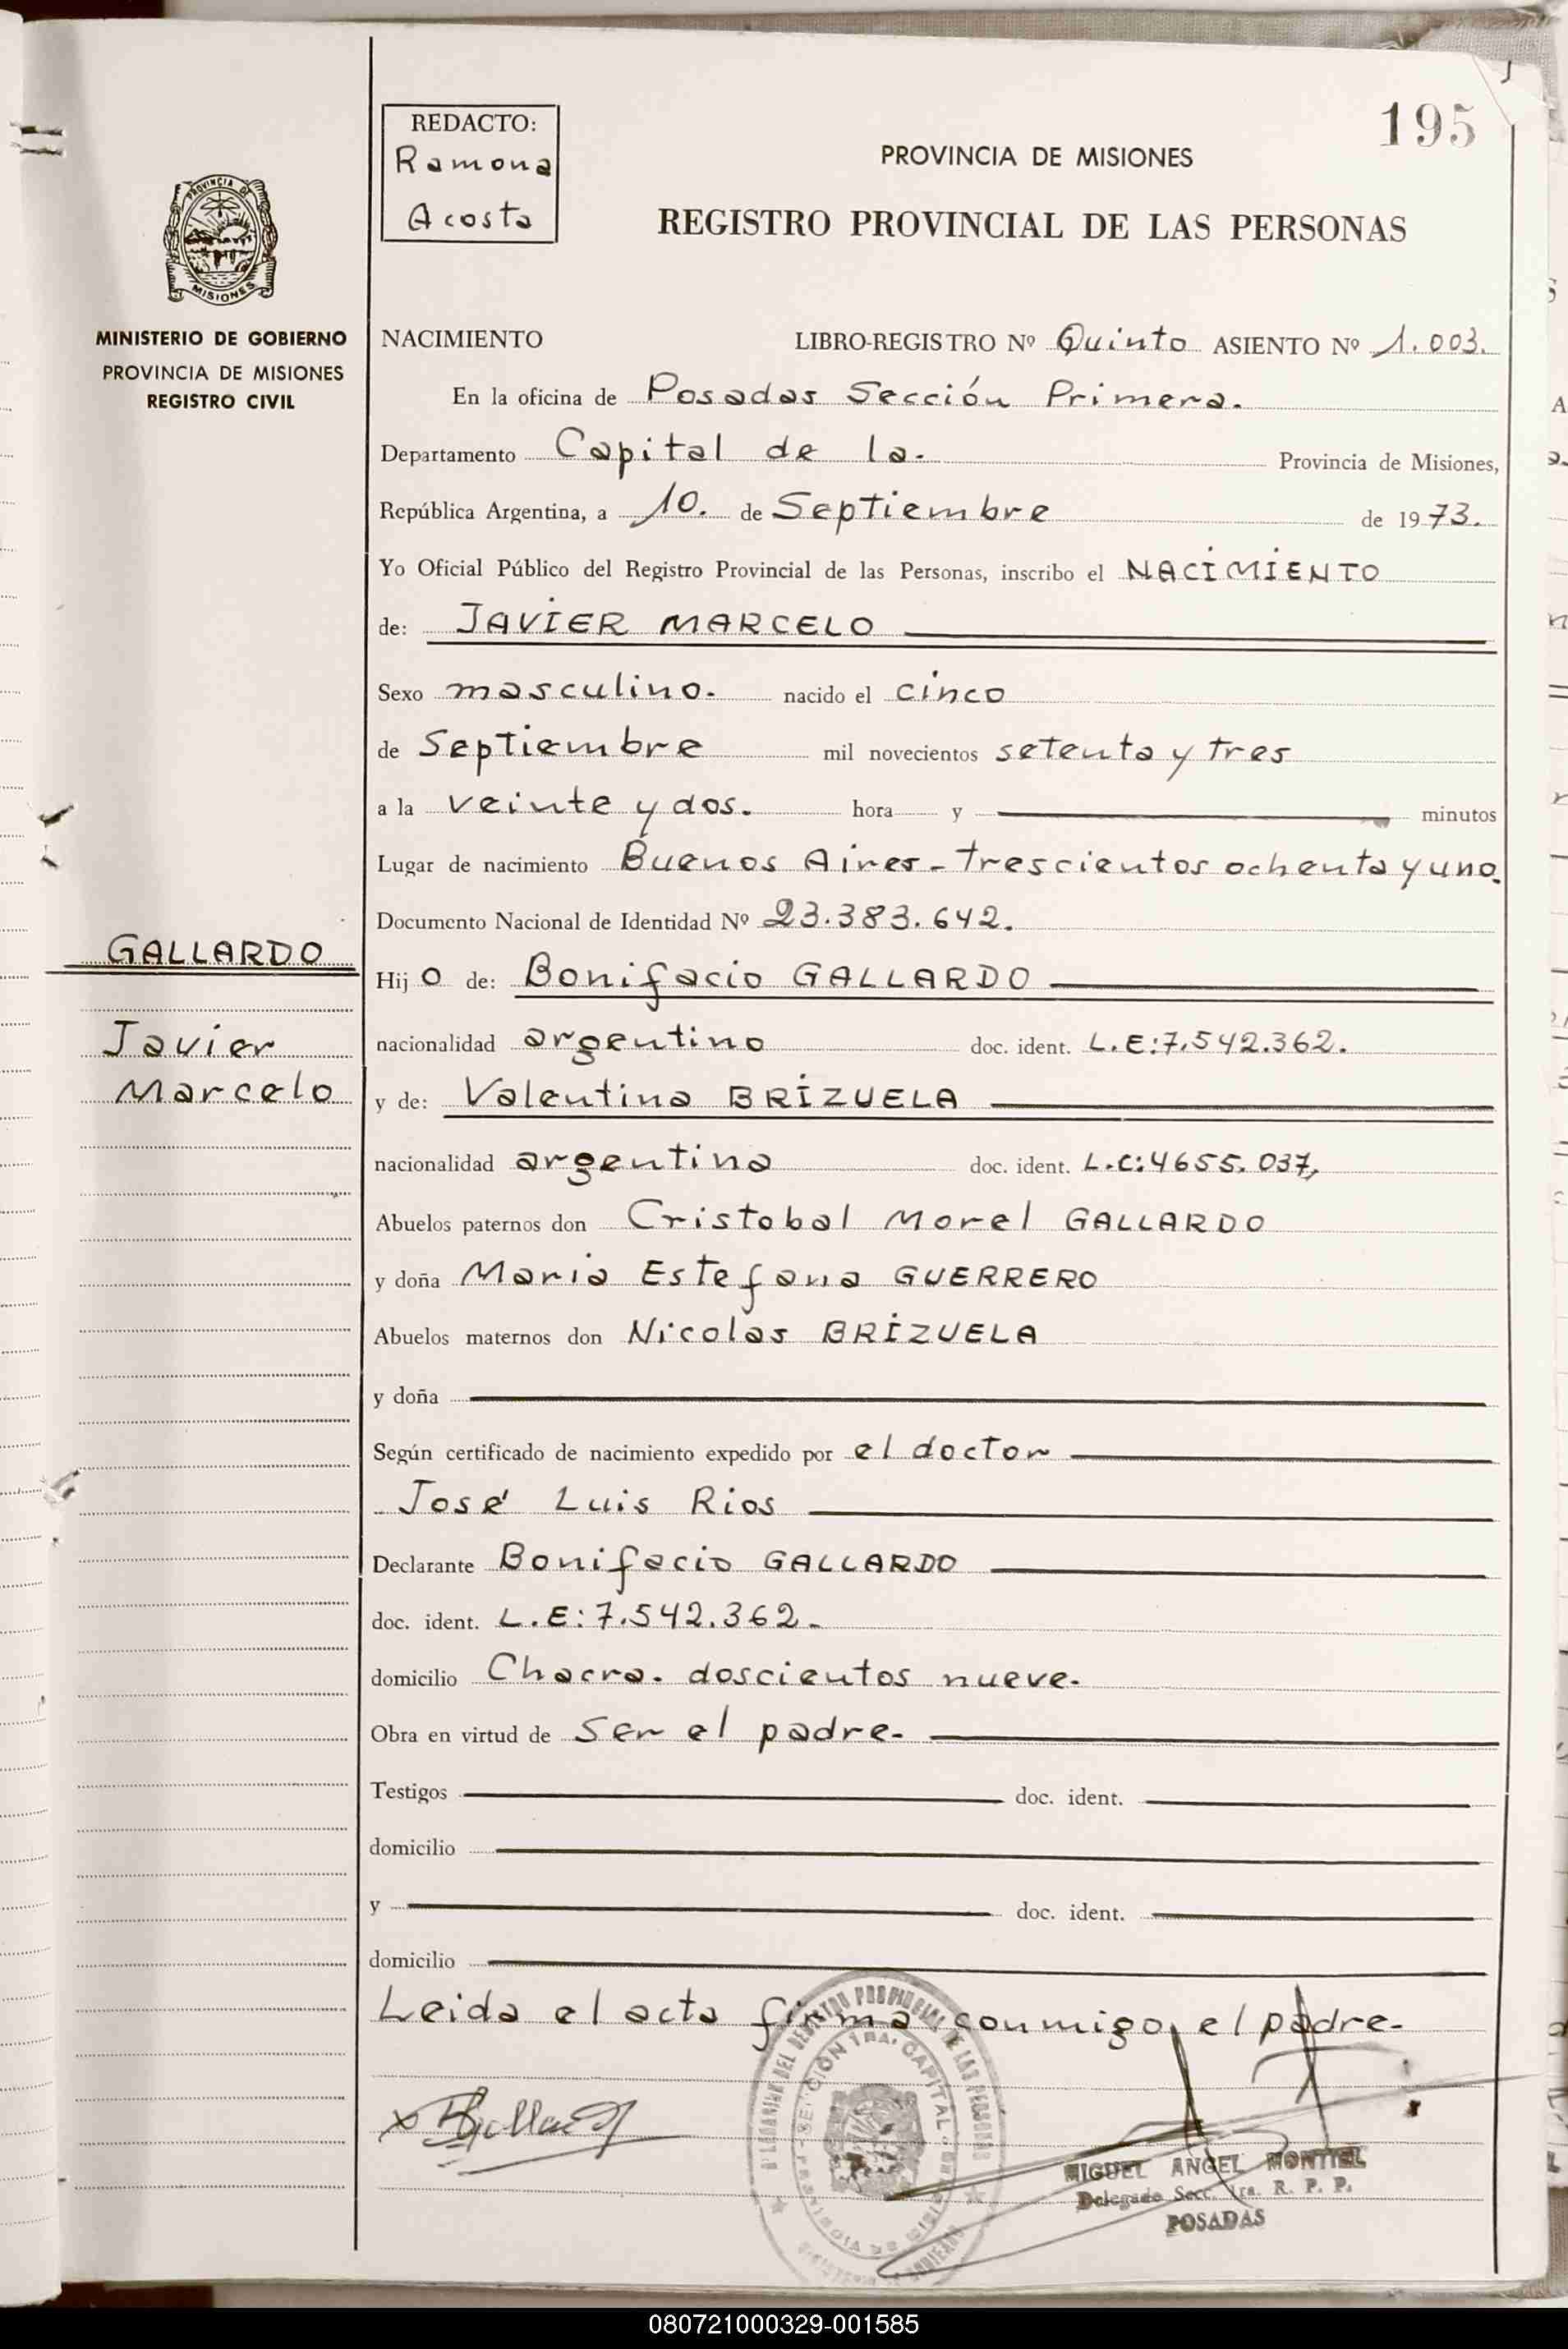 195
REDACTO:
Ramona
Acosta
PROVINCIA DE MISIONES
REGISTRO PROVINCIAL DE LAS PERSONAS
PROVINCIA DE
MISIONES
MINISTERIO DE GOBIERNO
PROVINCIA DE MISIONES
REGISTRO CIVIL
NACIMIENTO LIBRO-REGISTRO Nº Quinto ASIENTO Nº 1.003.
En la oficina de Posadas Sección Primera.
Departamento Capital de la. Provincia de Misiones,
República Argentina, a 10. de Septiembre de 1973.
Yo Oficial Público del Registro Provincial de las Personas, inscribo el NACIMIENTO
de: JAVIER MARCELO
Sexo masculino. nacido el cinco
de Septiembre mil novecientos setenta y tres
a la veinte y dos. hora y minutos
Lugar de nacimiento Buenos Aires - trescientos ochenta y uno.
Documento Nacional de Identidad Nº 23.383.642.
GALLARDO
Javier
Marcelo
Hijo de: Bonifacio GALLARDO
nacionalidad argentino doc. ident. L.E:7.542.362.
y de: Valentina BRIZUELA
nacionalidad argentina doc. ident. L.C:4655.037,
Abuelos paternos don Cristobal Morel GALLARDO
y doña Maria Estefana GUERRERO
Abuelos maternos don Nicolas BRIZUELA
y doña
Según certificado de nacimiento expedido por el doctor
José Luis Rios
Declarante Bonifacio GALLARDO
doc. ident. L.E:7.542.362.
domicilio Chacra. doscientos nueve.
Obra en virtud de ser el padre.
Testigos doc. ident.
domicilio
y doc. ident.
domicilio
Leida el acta firma conmigo, el padre.
DEL REGISTRO PROVINCIAL DE LAS PERSONAS
SECCIÓN 1RA. CAPITAL
MIGUEL ANGEL MONTIEL
Delegado Secc. 1ra. R. P. P.
POSADAS
080721000329-001585